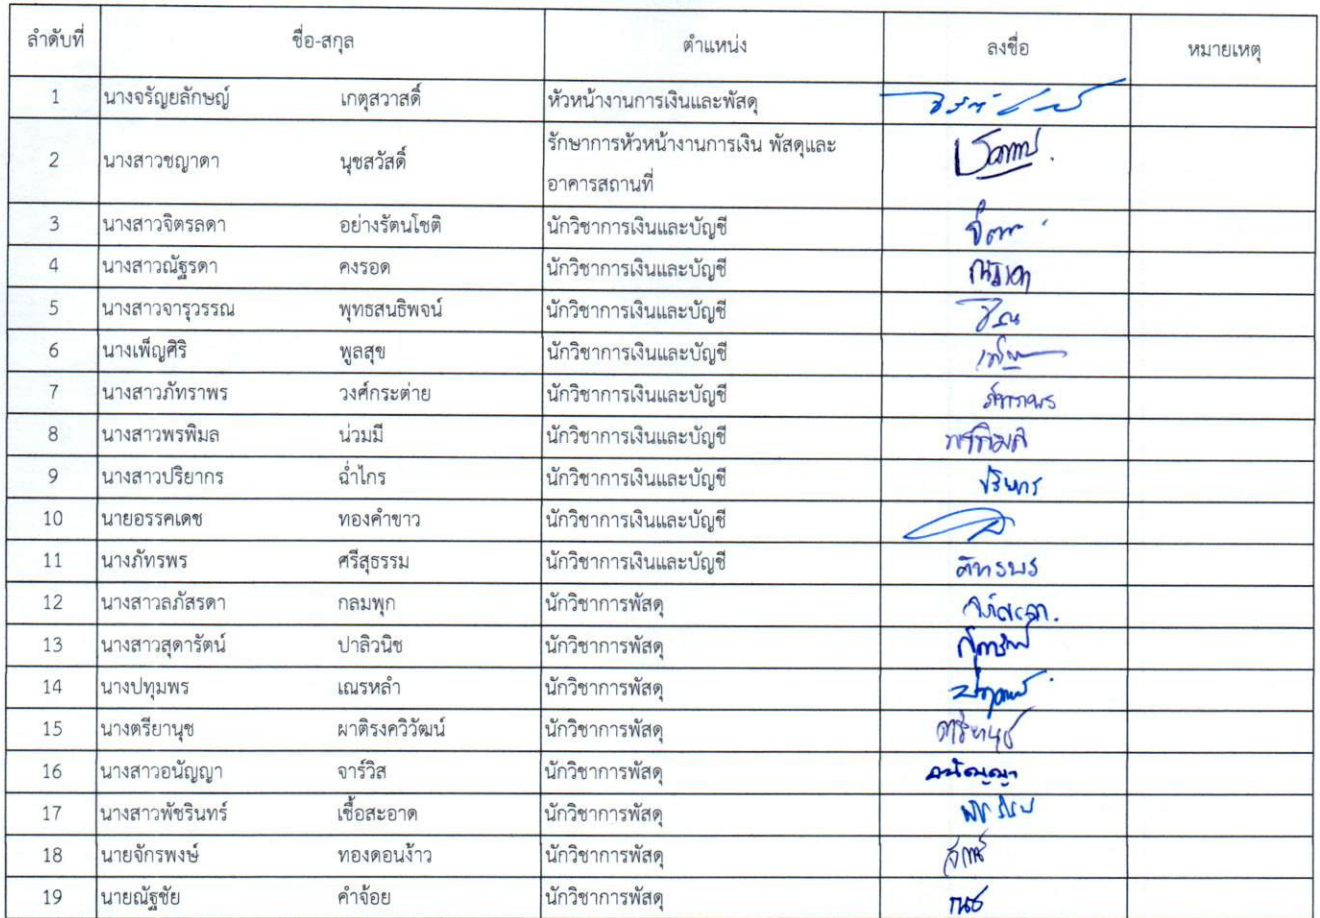 ลำดับที่ ชื่อ-สกุล ตำแหน่ง ลงชื่อ หมายเหตุ
1 นางจรัญยลักษณ์ เกตุสวาสดิ์ หัวหน้างานการเงินและพัสดุ
2 นางสาวชญาดา นุชสวัสดิ์ รักษาการหัวหน้างานการเงิน พัสดุและ
อาคารสถานที่
3 นางสาวจิตรลดา อย่างรัตนโชติ นักวิชาการเงินและบัญชี
4 นางสาวณัฐรดา คงรอด นักวิชาการเงินและบัญชี
5 นางสาวจารุวรรณ พุทธสนธิพจน์ นักวิชาการเงินและบัญชี
6 นางเพ็ญศิริ พูลสุข นักวิชาการเงินและบัญชี
7 นางสาวภัทราพร วงศ์กระต่าย นักวิชาการเงินและบัญชี ภัทราพร
8 นางสาวพรพิมล น่วมมี นักวิชาการเงินและบัญชี พรพิมล
9 นางสาวปริยากร ฉ่ำไกร นักวิชาการเงินและบัญชี
10 นายอรรคเดช ทองคำขาว นักวิชาการเงินและบัญชี
11 นางภัทรพร ศรีสุธรรม นักวิชาการเงินและบัญชี ภัทรพร
12 นางสาวลภัสรดา กลมพุก นักวิชาการพัสดุ
13 นางสาวสุดารัตน์ ปาลิวนิช นักวิชาการพัสดุ
14 นางปทุมพร เณรหลำ นักวิชาการพัสดุ
15 นางตรียานุช ผาติรงควิวัฒน์ นักวิชาการพัสดุ ตรียานุช
16 นางสาวอนัญญา จาร์วิส นักวิชาการพัสดุ อนัญญา
17 นางสาวพัชรินทร์ เชื้อสะอาด นักวิชาการพัสดุ
18 นายจักรพงษ์ ทองดอนง้าว นักวิชาการพัสดุ
19 นายณัฐชัย คำจ้อย นักวิชาการพัสดุ